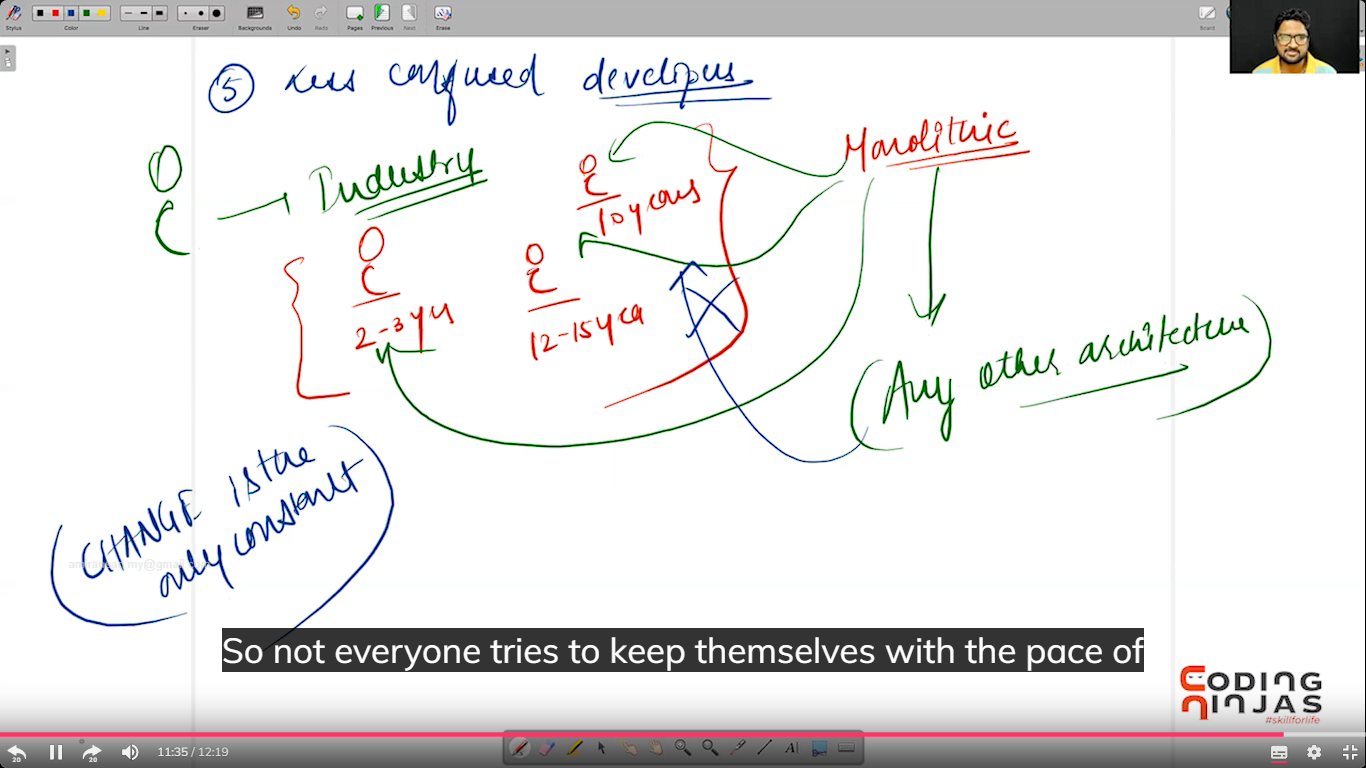 Stylus
Color
Line
Eraser
Backgrounds
Undo
Redo
Pages
Previous
Next
Erase
Board
5 Less confused developers
Monolithic
Industry
10 years
2-3 yrs
12-15 yea
(Any other architecture)
(CHANGE is the
only constant)
So not everyone tries to keep themselves with the pace of
CODING
NINJAS
#skillforlife
20
20
11:35 / 12:19